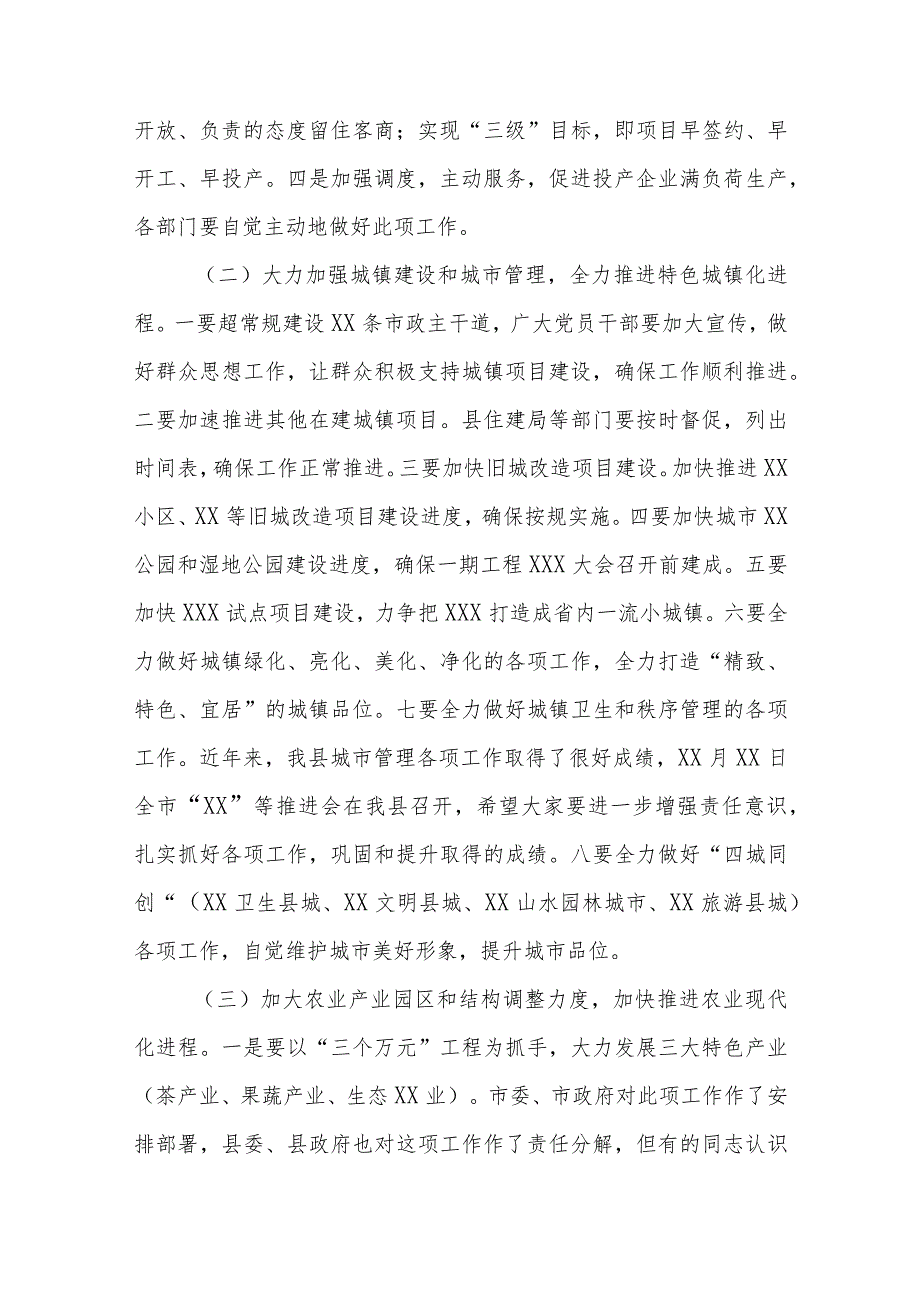 开放、负责的态度留住客商；实现“三级”目标，即项目早签约、早
开工、早投产。四是加强调度，主动服务，促进投产企业满负荷生产，
各部门要自觉主动地做好此项工作。
（二）大力加强城镇建设和城市管理，全力推进特色城镇化进
程。一要超常规建设 XX 条市政主干道，广大党员干部要加大宣传，做
好群众思想工作，让群众积极支持城镇项目建设，确保工作顺利推进。
二要加速推进其他在建城镇项目。县住建局等部门要按时督促，列出
时间表，确保工作正常推进。三要加快旧城改造项目建设。加快推进 XX
小区、XX 等旧城改造项目建设进度，确保按规实施。四要加快城市 XX
公园和湿地公园建设进度，确保一期工程 XXX 大会召开前建成。五要
加快 XXX 试点项目建设，力争把 XXX 打造成省内一流小城镇。六要全
力做好城镇绿化、亮化、美化、净化的各项工作，全力打造“精致、
特色、宜居”的城镇品位。七要全力做好城镇卫生和秩序管理的各项
工作。近年来，我县城市管理各项工作取得了很好成绩，XX 月 XX 日
全市“XX”等推进会在我县召开，希望大家要进一步增强责任意识，
扎实抓好各项工作，巩固和提升取得的成绩。八要全力做好“四城同
创“（XX 卫生县城、XX 文明县城、XX 山水园林城市、XX 旅游县城）
各项工作，自觉维护城市美好形象，提升城市品位。
（三）加大农业产业园区和结构调整力度，加快推进农业现代
化进程。一是要以“三个万元”工程为抓手，大力发展三大特色产业
（茶产业、果蔬产业、生态 XX 业）。市委、市政府对此项工作作了安
排部署，县委、县政府也对这项工作作了责任分解，但有的同志认识